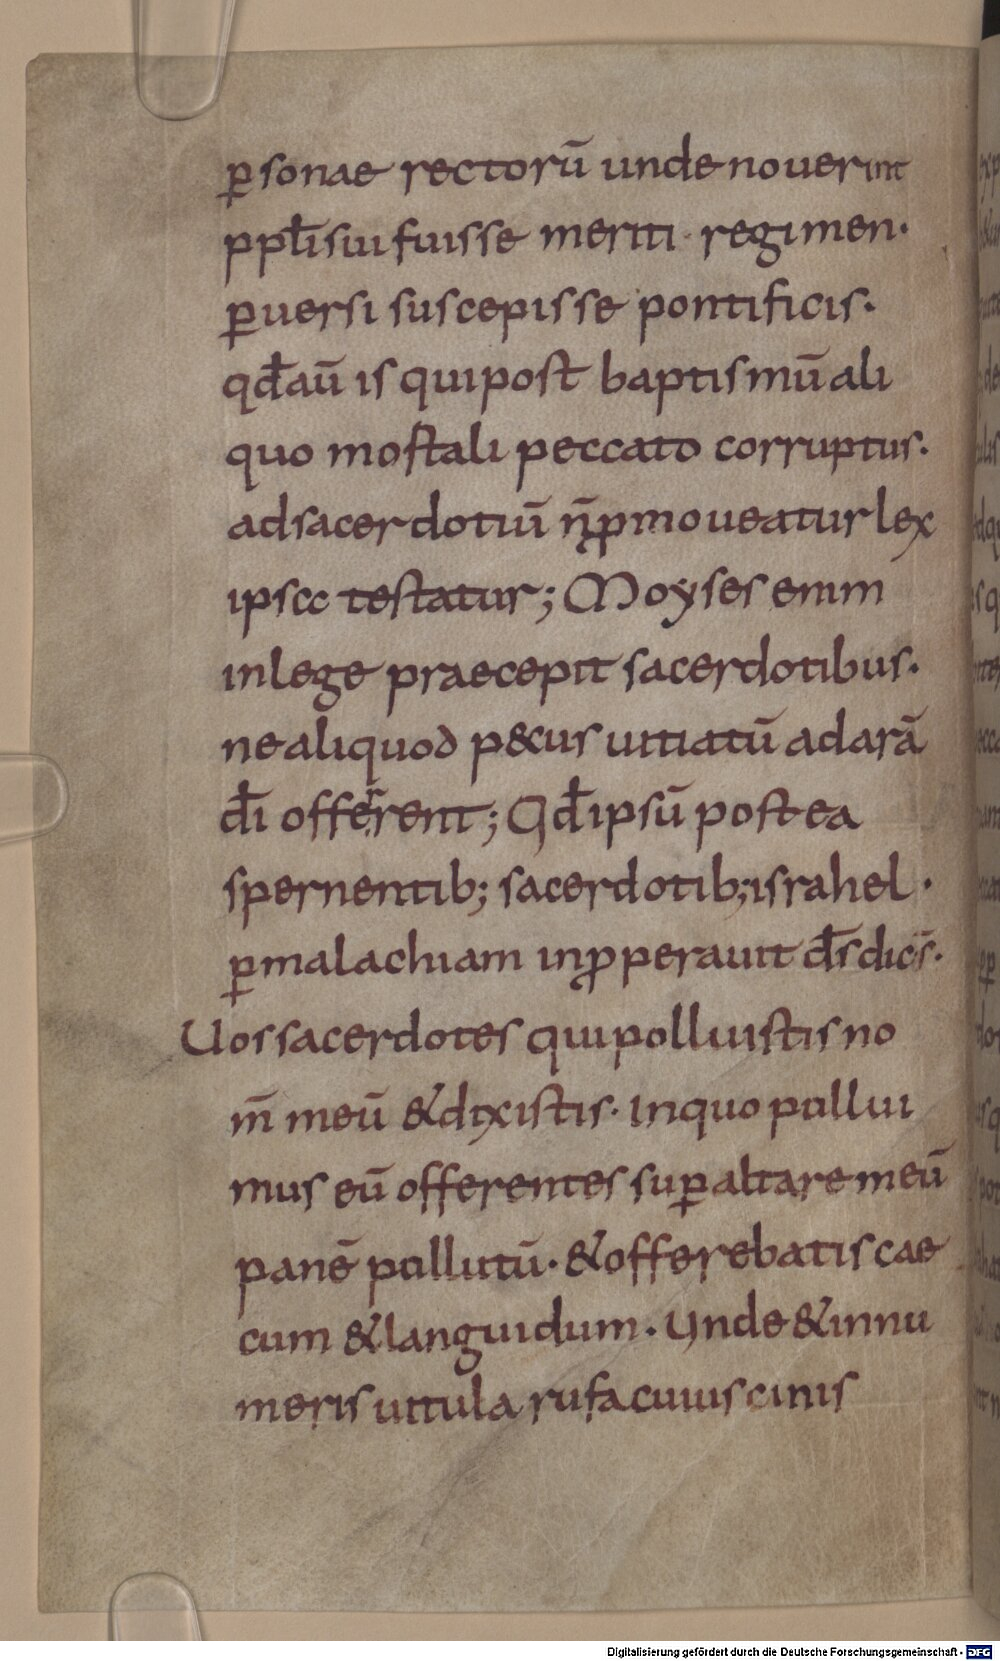 ꝑsonae rectorū unde nouerint
ppłi sui fuisse meriti regimen·
ꝑuersi suscepisse pontificis·
qđ aū is qui post baptismū ali
quo mortali peccato corruptus·
ad sacerdotiū n̄ ꝓmoueatur lex
ipsa testatur; Moyses enim
in lege praecepit sacerdotibus·
ne aliquod pecus uitiatū ad arā
đi offerrent; Qđ ipsū postea
spernentib; sacerdotib; israhel·
ꝑ malachiam inꝓperauit d̄s dic̄s·
Uos sacerdotes qui polluistis no
m̄ meū & dixistis· In quo pollui
mus eū offerentes suꝑ altare meū
panē pollutū· & offerebatis cae
cum & languidum· Unde & in nu
meris uitula rufa cuius cinis
Digitalisierung gefördert durch die Deutsche Forschungsgemeinschaft - DFG